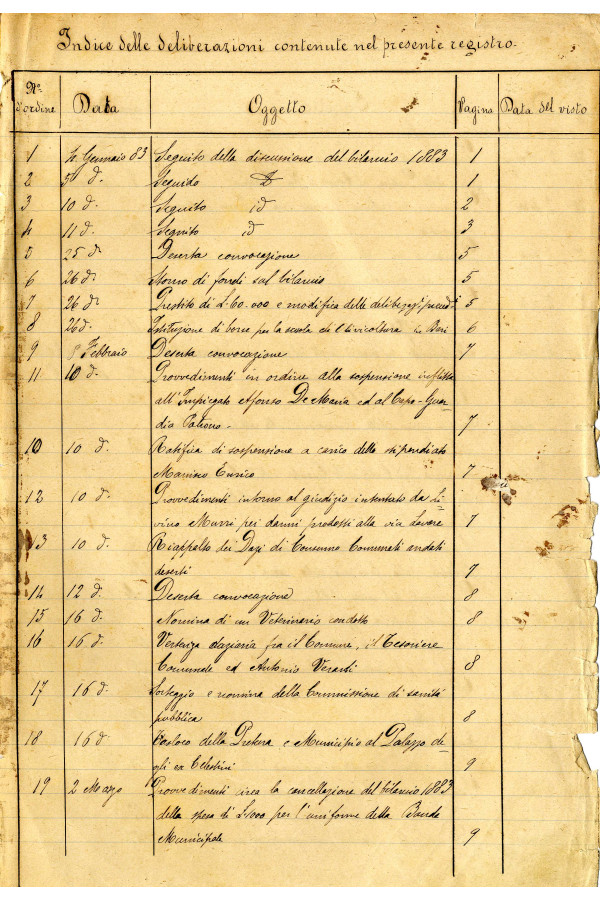 Indice delle deliberazioni contenute nel presente registro.
N.° d'ordine Data Oggetto Pagina Data del visto
1 4 Gennaio 83 Seguito della discussione del bilancio 1883 1
2 5 d. Seguido d 1
3 10 d. Seguito id 2
4 11 d. Seguito id 3
5 25 d. Deserta convocazione 5
6 26 d. Storno di fondi sul bilancio 5
7 26 d. Prestito di L. 60.000 e modifica delle deliberazi 5
8 26 d. Istituzione di borse per la scuola di Olivicoltura in Bari 6
9 8 Febbraio Deserta convocazione 7
11 10 d. Provvedimenti in ordine alla sospensione inflitta
all'Impiegato Alfonso De Maria ed al Capo-Guar
dia 7
10 10 d. Ratifica di sospensione a carico dello stipendiato
Enrico 7
12 10 d. Provvedimenti intorno al giudizio intentato da Li
vino Murri pei danni prodotti alla via 7
13 10 d. Riappalto dei Dazi di Consumo Comunali andati
deserti 7
14 12 d. Deserta convocazione 8
15 16 d. Nomina di un Veterinario condotto 8
16 16 d. Vertenza daziaria fra il Comune, il Tesoriere
Comunale ed Antonio 8
17 16 d. Sorteggio e nomina della Commissione di sanità
pubblica 8
18 16 d. Trasloco della Pretura e Municipio al Palazzo de
gli ex Celestini 9
19 2 Marzo Provvedimenti circa la cancellazione del bilancio 1883
della spesa di L. 1000 per l'uniforme della Banda
Municipale 9